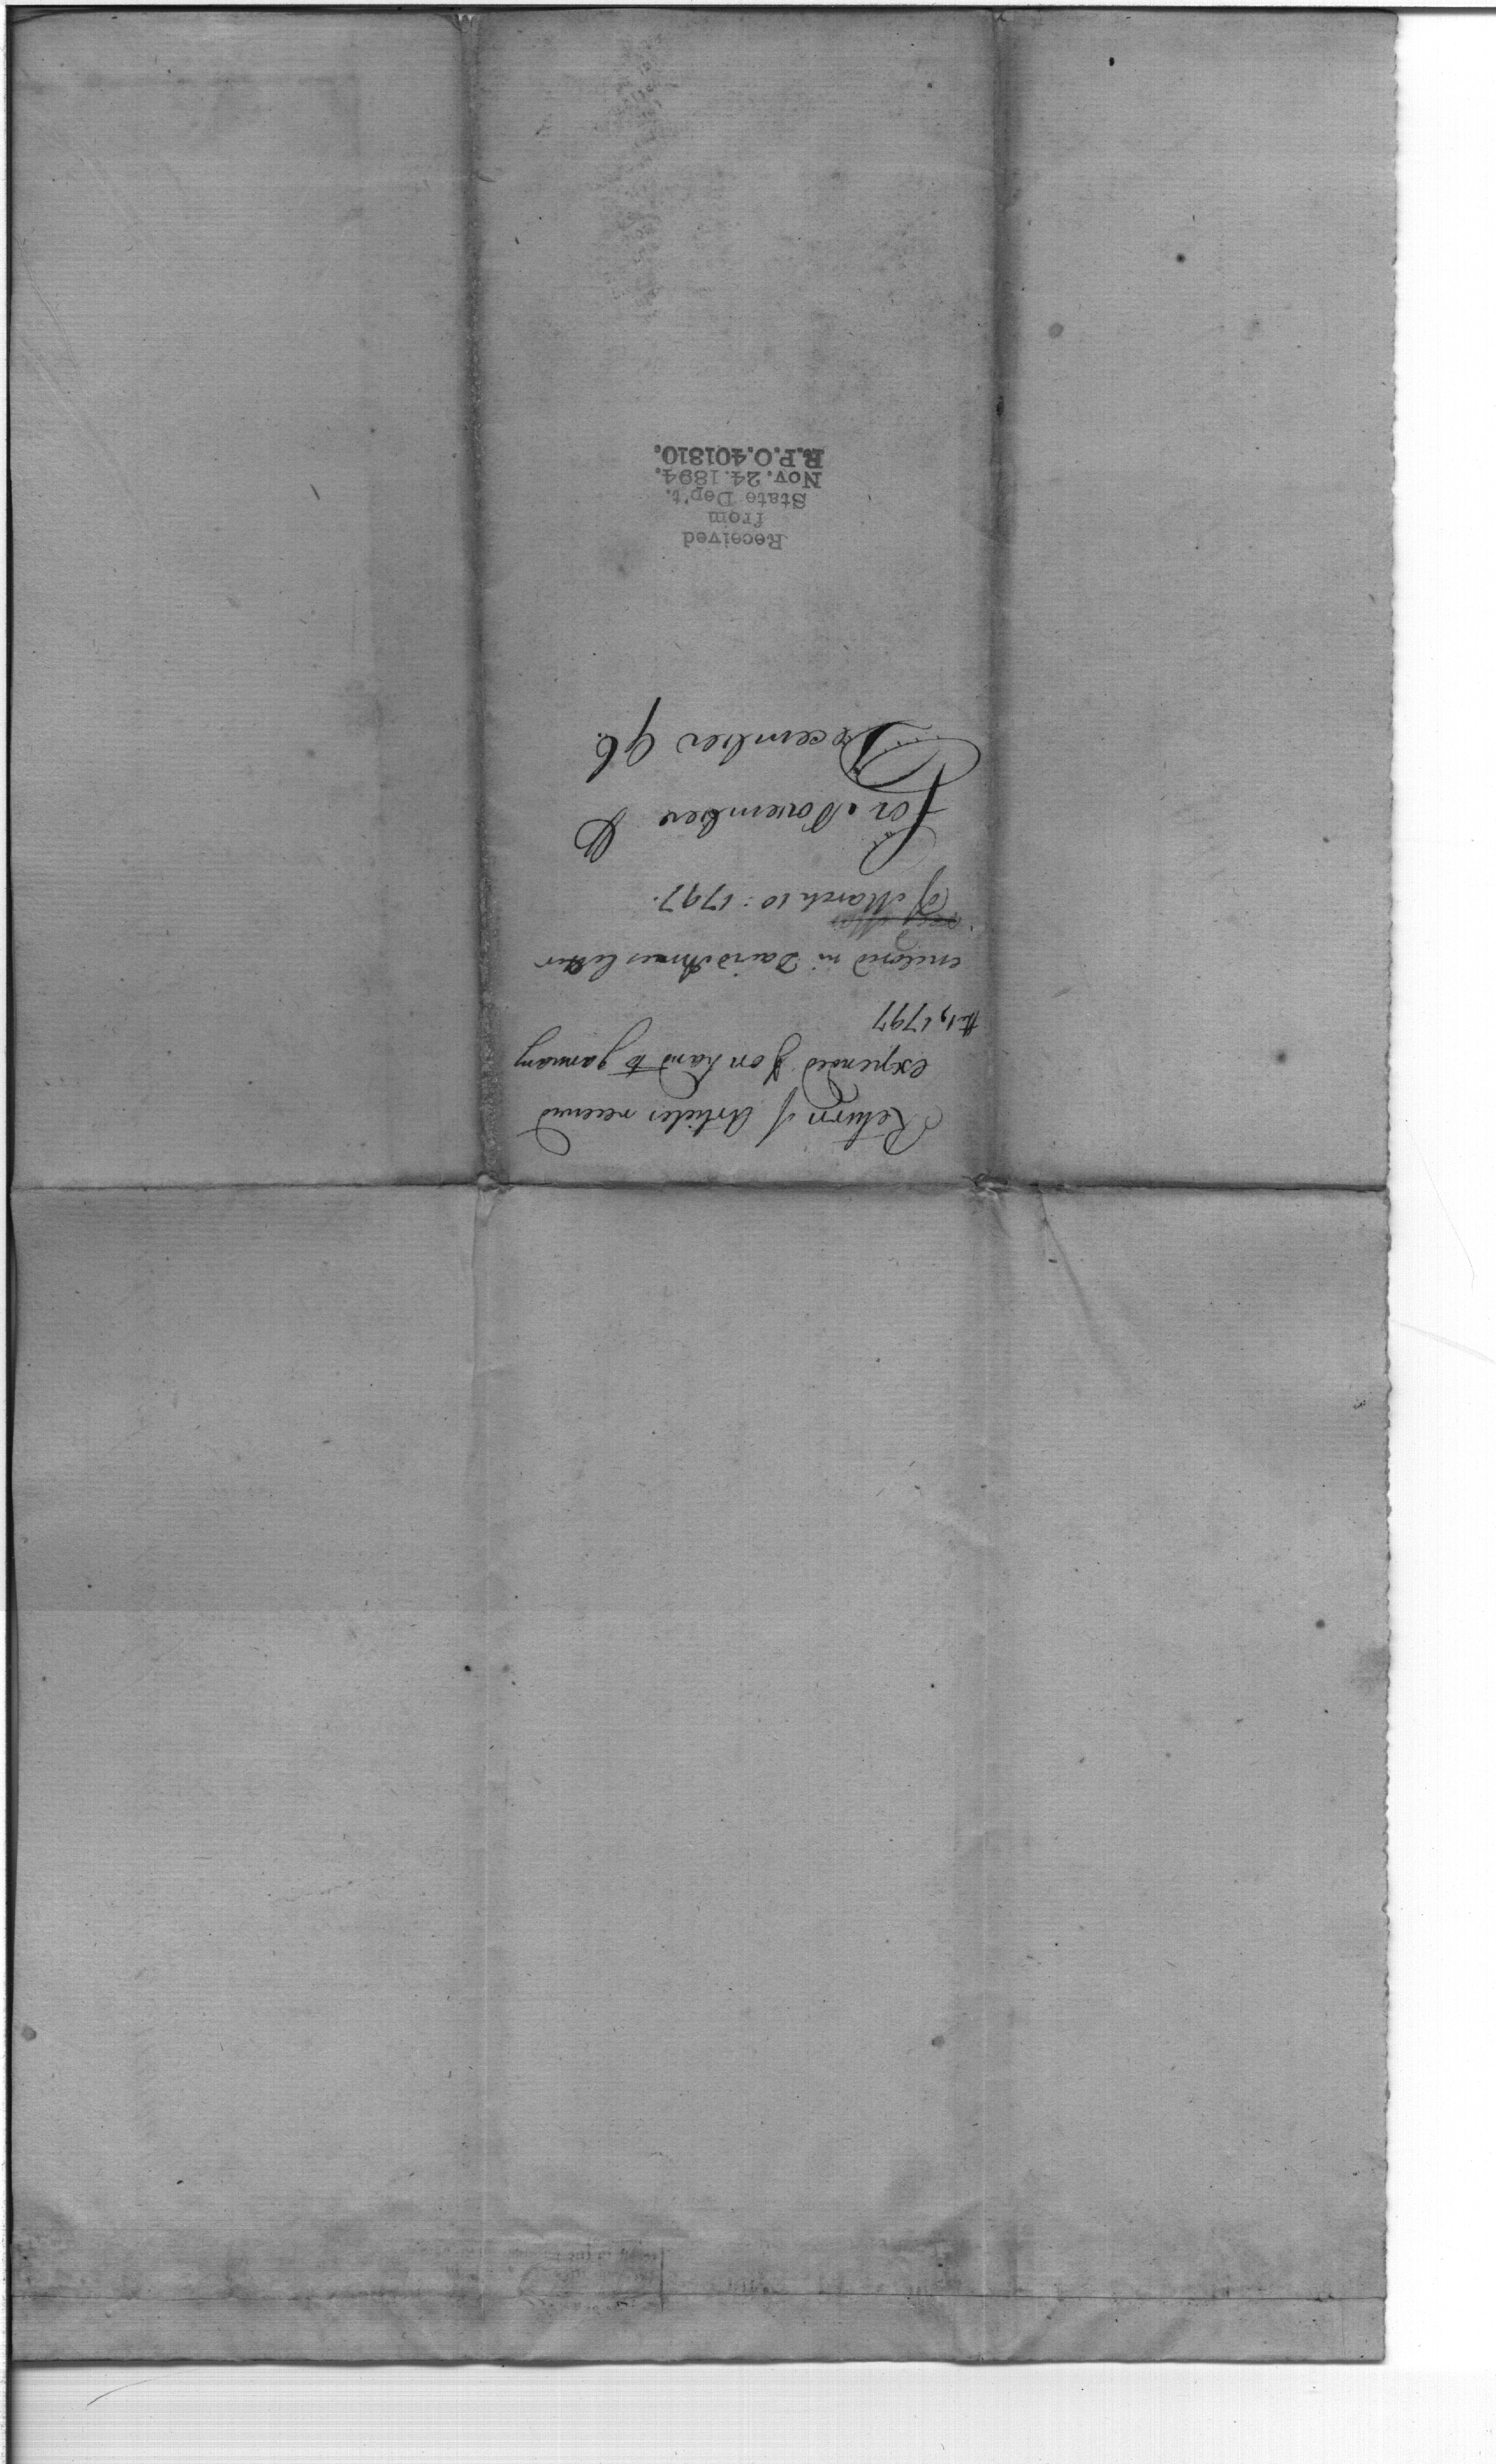 Return of Articles received
expended & on hand to January
the 1, 1797
enclosed in David Ames letter
of March 10: 1797.
For November &
December 96.
Received
from
State Dep't.
Nov. 24. 1894.
R.P.O. 401810.